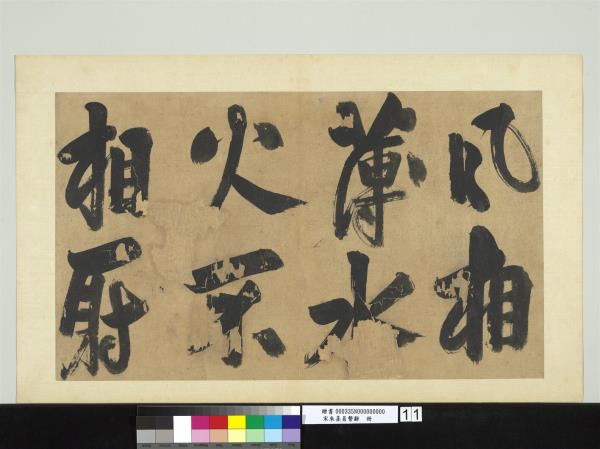 風相
薄水
火不
相射
贈書 000335N000000000
宋朱熹易繫辭 冊
11